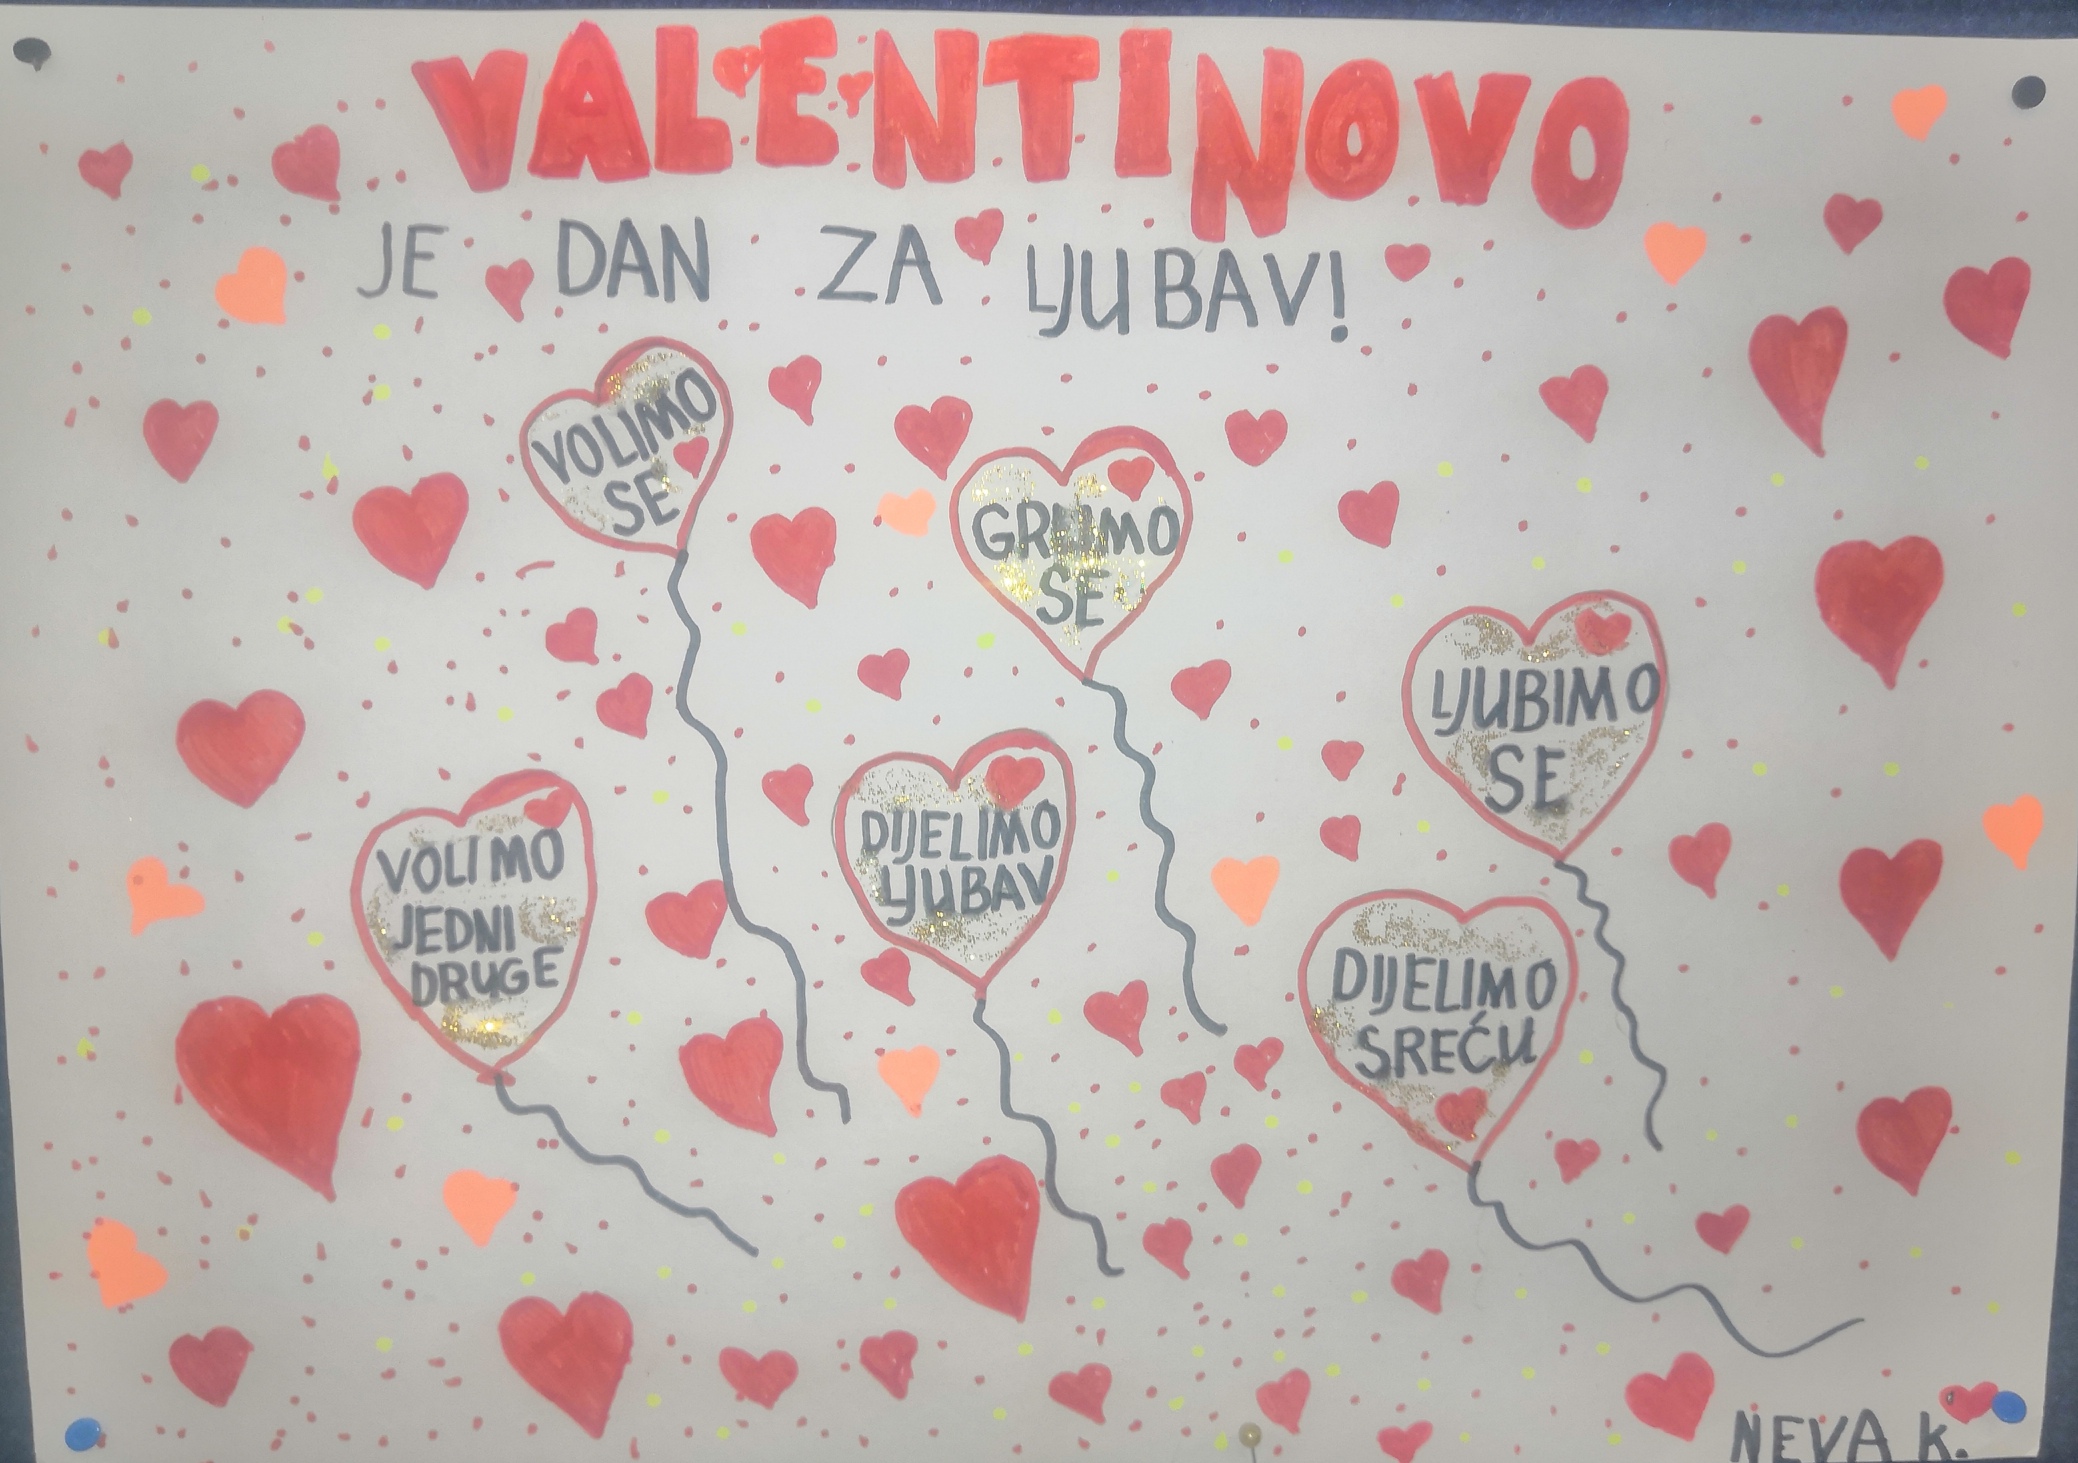 VALENTINOVO
JE DAN ZA LJUBAV!
VOLIMO
SE
GRLIMO
SE
LJUBIMO
SE
DIJELIMO
LJUBAV
VOLIMO
JEDNI
DRUGE
DIJELIMO
SREĆU
NEVA K.